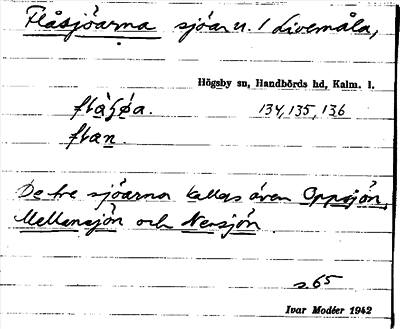 Flåsjöarna sjöar u. / Livemåla,
Högsby sn, Handbörds hd, Kalm. l.
134, 135, 136
flan.
De tre sjöarna kallas även Oppsjön,
Mellansjön och Nersjön
s 65
Ivar Modéer 1942